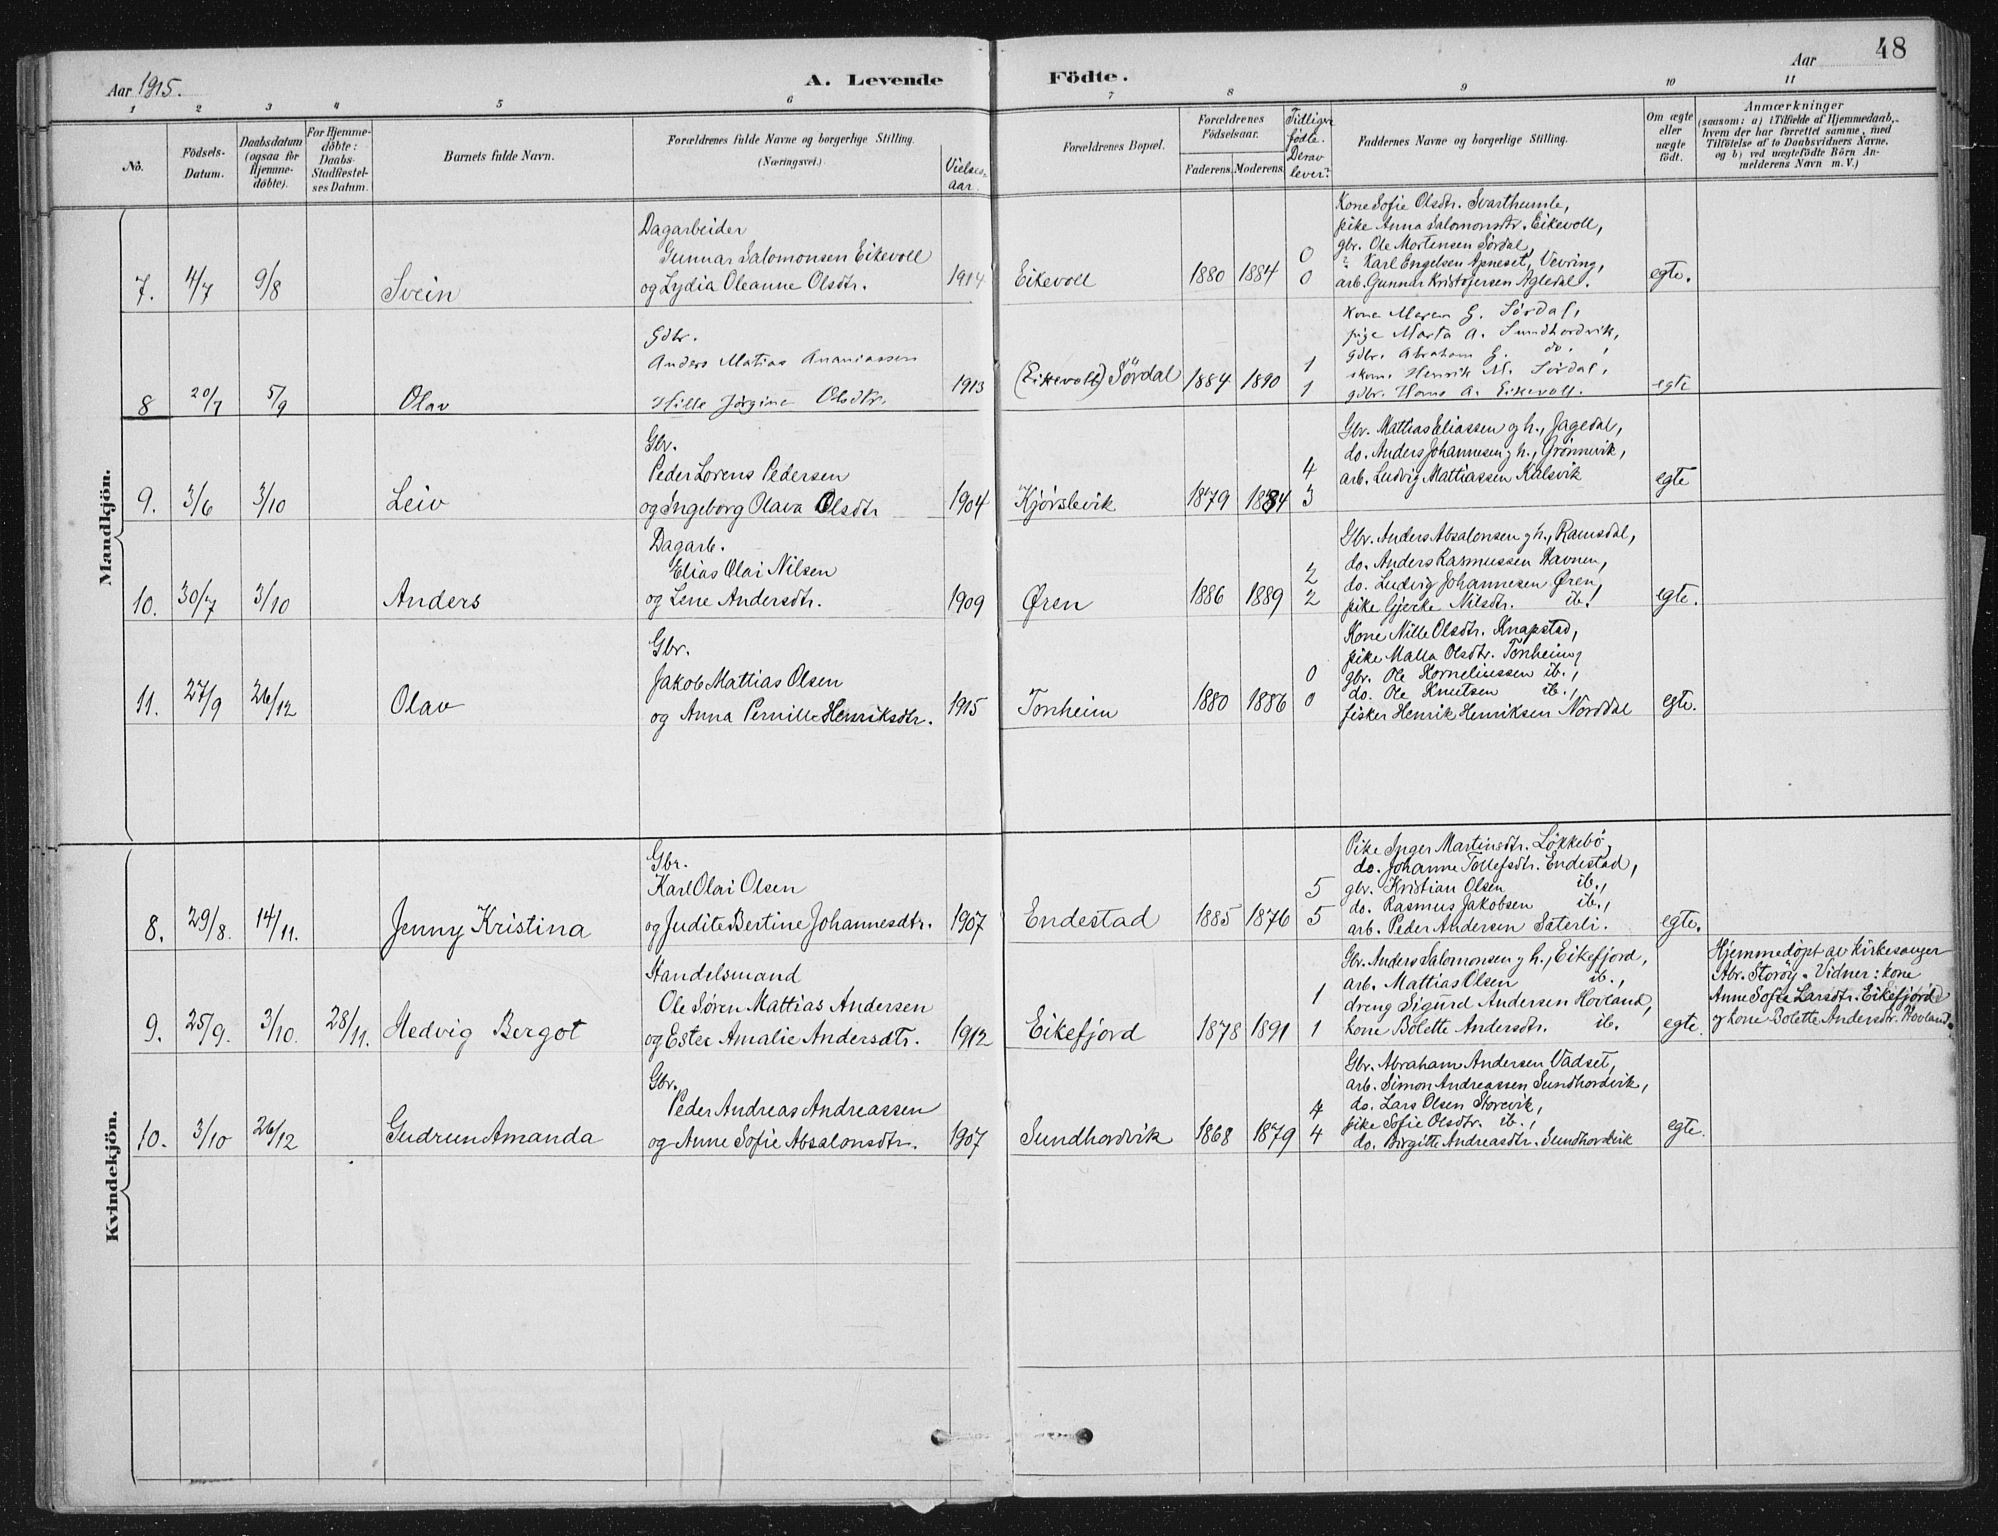 48
Aar 1915. A. Levende Födte. Aar
1 2 3 4 5 6 7 8 9 10 11
No.
Födsels-
Datum.
Daabsdatum
(ogsaa for
Hjemme-
döbte).
For Hjemme-
döbte:
Daabs-
Stadfæstel-
ses Datum.
Barnets fulde Navn.
Forældrenes fulde Navne og borgerlige Stilling.
(Næringsvei.)
Vielses-
aar.
Forældrenes Bopæl.
Forældrenes
Födselsaar.
Faderens. Moderens.
Tidligere
födte.
Derav
lever?
Faddernes Navne og borgerlige Stilling.
Om ægte
eller
uægte
födt.
Anmærkninger
(saasom: a) i Tilfælde af Hjemmedaab,
hvem der har forrettet samme, med
Tilföielse af to Daabsvidners Navne,
og b) ved uægtefödte Börn An-
melderens Navn m. V.)
Mandkjön.
7. 4/7 9/8 Svein
Dagarbeider
Gunnar Salomonsen Eikevoll
og Lydia Oleanne Olsdtr. 1914
Eikevoll 1880 1884
0
0
Kone Sofie Olsdtr. Svarthumle,
pike Anna Salomonsdtr. Eikevoll,
gbr. Ole Mortensen Sørdal,
" Karl Engelsen Apneset, Vevring,
arb. Gunnar Kristofersen Agledal.
egte.
8 20/7 5/9 Olav
Gdbr.
Anders Matias Ananiassen
Hille Jørgine Olsdtr. 1913
(Eikevoll) Sördal 1884 1890
1
1
Kone Maren G. Sørdal,
pige Marta A. Sundhordvik,
gdbr. Abraham G. do. ,
skom. Henrik M. Sørdal,
gdbr. Hans A. Eikevoll.
egte
9. 3/6 3/10 Leiv
Gbr.
Peder Lorens Pedersen
og Ingeborg Olava Olsdtr 1904
Kjørslevik 1879 1884
4
3
Gbr. Mattias Eliassen og h., Jagedal,
do. Anders Johannesen og h., Grønnevik,
arb. Ludvig Mattiassen Kalsvik
egte
10. 30/7 3/10 Anders
Dagarb.
Elias Olai Nilsen
og Lene Andersdtr. 1909
Øren 1886 1889
2
2
Gbr. Anders Absalonsen og h., Ramsdal,
do. Anders Rasmussen Havnen,
do. Ludvig Johannesen Øren,
pike Gjerke Nilsdtr. ib.
egte.
11. 27/9 26/12 Olav
Gbr.
Jakob Mattias Olsen
og Anna Pernille Henriksdtr. 1915
Tonheim 1880 1886
0
0
Kone Nille Olsdtr. Knapstad,
pike Malla Olsdtr. Tonheim,
gbr. Ole Korneliussen ib.,
do. Ole Knutsen ib.,
fisker Henrik Henriksen Norddal
egte.
Kvindekjön.
8. 29/8. 14/11. Jenny Kristina
Gbr.
Karl Olai Olsen
og Judite Bertine Johannesdtr. 1907
Endestad 1885 1876
5
5
Pike Inger Martinsdtr. Løkkebö,
do. Johanne Tollefsdtr. Endestad,
gbr. Kristian Olsen ib.,
do. Rasmus Jakobsen ib.,
arb. Peder Andersen Säterli.
egte.
9. 25/9. 3/10. 28/11. Hedvig Bergot
Handelsmand
Ole Søren Mattias Andersen
og Ester Amalie Andersdtr. 1912
Eikefjord 1878 1891
1
1
Gbr. Anders Salomonsen og h., Eikefjord,
arb. Mattias Olsen ib.,
dreng Sigurd Andersen Hovland,
kone Bolette Andersdtr. ib.
egte.
Hjemmedöpt av kirkesanger
Abr. Storöy. Vidner: kone
Anne Sofie Larsdtr. Eikefjord
og kone Bolette Andersdtr. Hovland.
10. 3/10 26/12 Gudrun Amanda
Gbr.
Peder Andreas Andreassen
og Anne Sofie Absalonsdtr. 1907
Sundhordvik 1868 1879
4
4
Gbr. Abraham Andersen Vadset,
arb. Simon Andreassen Sundhordvik,
do. Lars Olsen Storevik,
pike Sofie Olsdtr. ib.,
do. Birgitte Andreasdtr. Sundhordvik
egte.